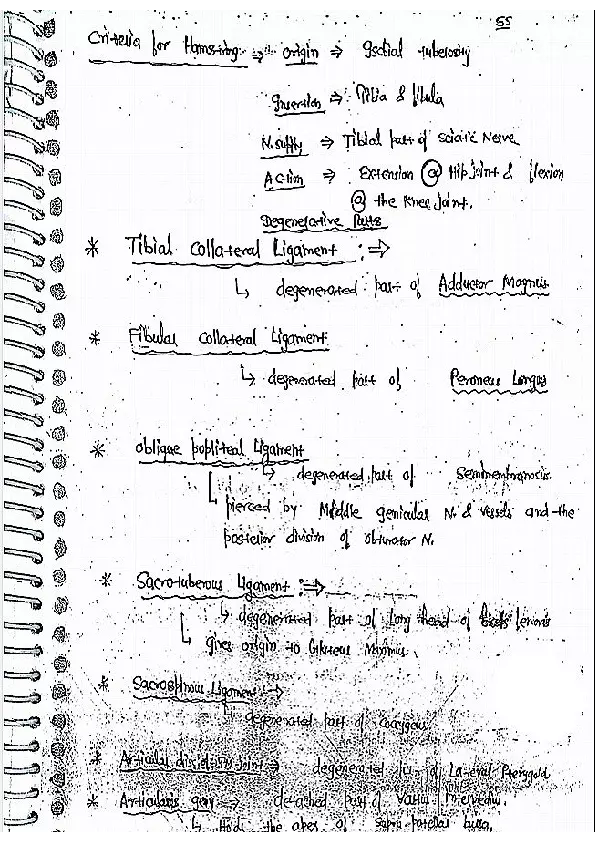 55
Criteria for Hamstring ⇒ origin ⇒ Ischial tuberosity
Insertion ⇒ Tibia & fibula
N. supply ⇒ Tibial part of Sciatic Nerve
Action ⇒ Extension @ Hip Joint & flexion
@ the Knee Joint.
Degenerative Parts
* Tibial Collateral Ligament :⇒
↳ degenerated part of Adductor Magnus
* Fibular Collateral Ligament
↳ degenerated part of Peroneus Longus
* oblique popliteal Ligament
↳ degenerated part of Semimembranosus
pierced by Middle genicular N. & vessels and the
posterior division of obturator N.
* Sacrotuberous Ligament :⇒
↳ degenerated part of Long head of Biceps femoris
↳ Gives origin to Gluteus Maximus.
* Sacrospinous Ligament :⇒
degenerated part of Coccygeus
* Articular disc of Joint ⇒ degenerated part of Lateral Pterygoid
* Articularis genu ⇒ detached part of Vastus
↳ Hold the apex of Supra patellar bursa.